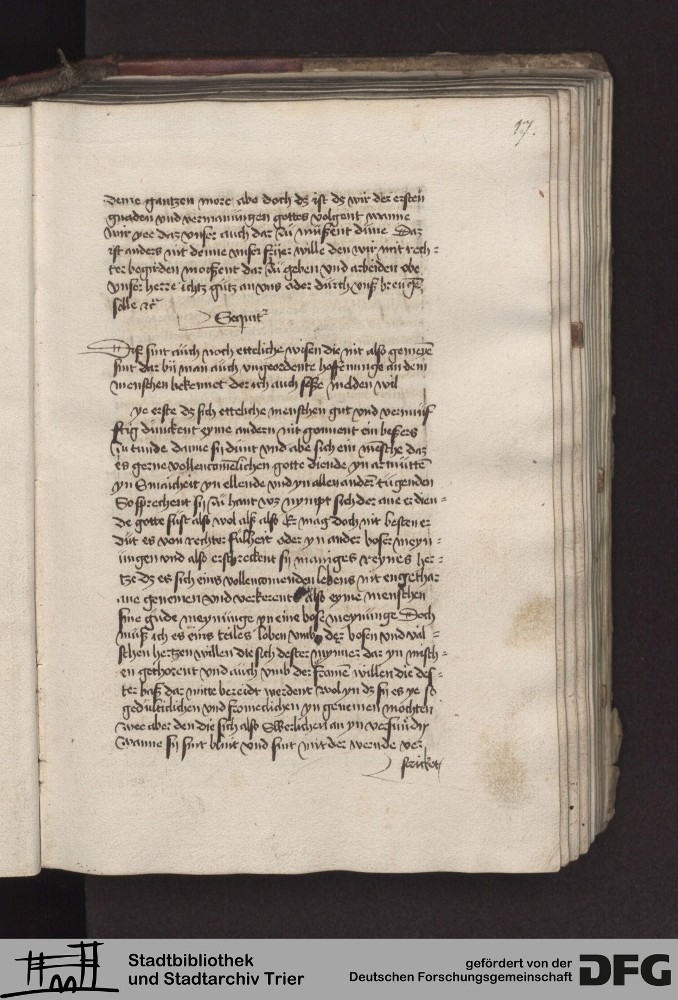 17.
deme gantzen more abe doch dz ist dz wir der ersten
gnaden vnd vermanungen gottes volgent wanne
wir yee daz vnser auch dar zu mußent dune Daz
ist anders nit denne vnser frijer wille den wir mit rech =
ter begirden mochent dar zu geben vnd arbeiden obe
vnser herre ichtz gutz an vns oder durch vnß
solle etc
Sequitur
Diß sint auch noch etteliche wisen die nit also gemeyne
sint dar bij man auch vngeordente hoffenunge an dem
menschen bekennet der ich auch seße melden wil
ye erste dz sich etteliche menschen gut vnd vernunf
ftig dunckent eyme andern nit gonnent ein beßers
zu tunde danne sij dunt vnd abe sich ein mensche daz
es gerne vollencomelichen gotte diende yn armutten
yn smaicheit yn ellende vnd yn allen ander tugenden
So sprechent sij zu hant wz nympt sich der ane er dien =
de gotte sust also wol als also Er mag doch nit besten er
dut es von rechter falheit oder yn ander boser meyn =
ungen vnd also erschreckent sij maniges reynes her =
tze dz es sich eins vollencomenden lebens nit engethar
ane genemen vnd verkerent also eyme menschen
sine gude meynunge yn eine bose meynunge Doch
muß ich es eins teiles loben vmb der bosen vnd val =
schen hertzen willen die sich dester mynner dar yn misch =
en gethorent vnd auch vmb der fromen willen die des =
ter baß dar mitte bereidt werdent wol yn dz sij es ye so
gedulticlichen vnd fromeclichen yn genemen mochten
wee aber den die sich also an yn versunden
wanne sij sint blint vnd sint mit der werlde ver
stricket
Stadtbibliothek
und Stadtarchiv Trier
gefördert von der
Deutschen Forschungsgemeinschaft
DFG